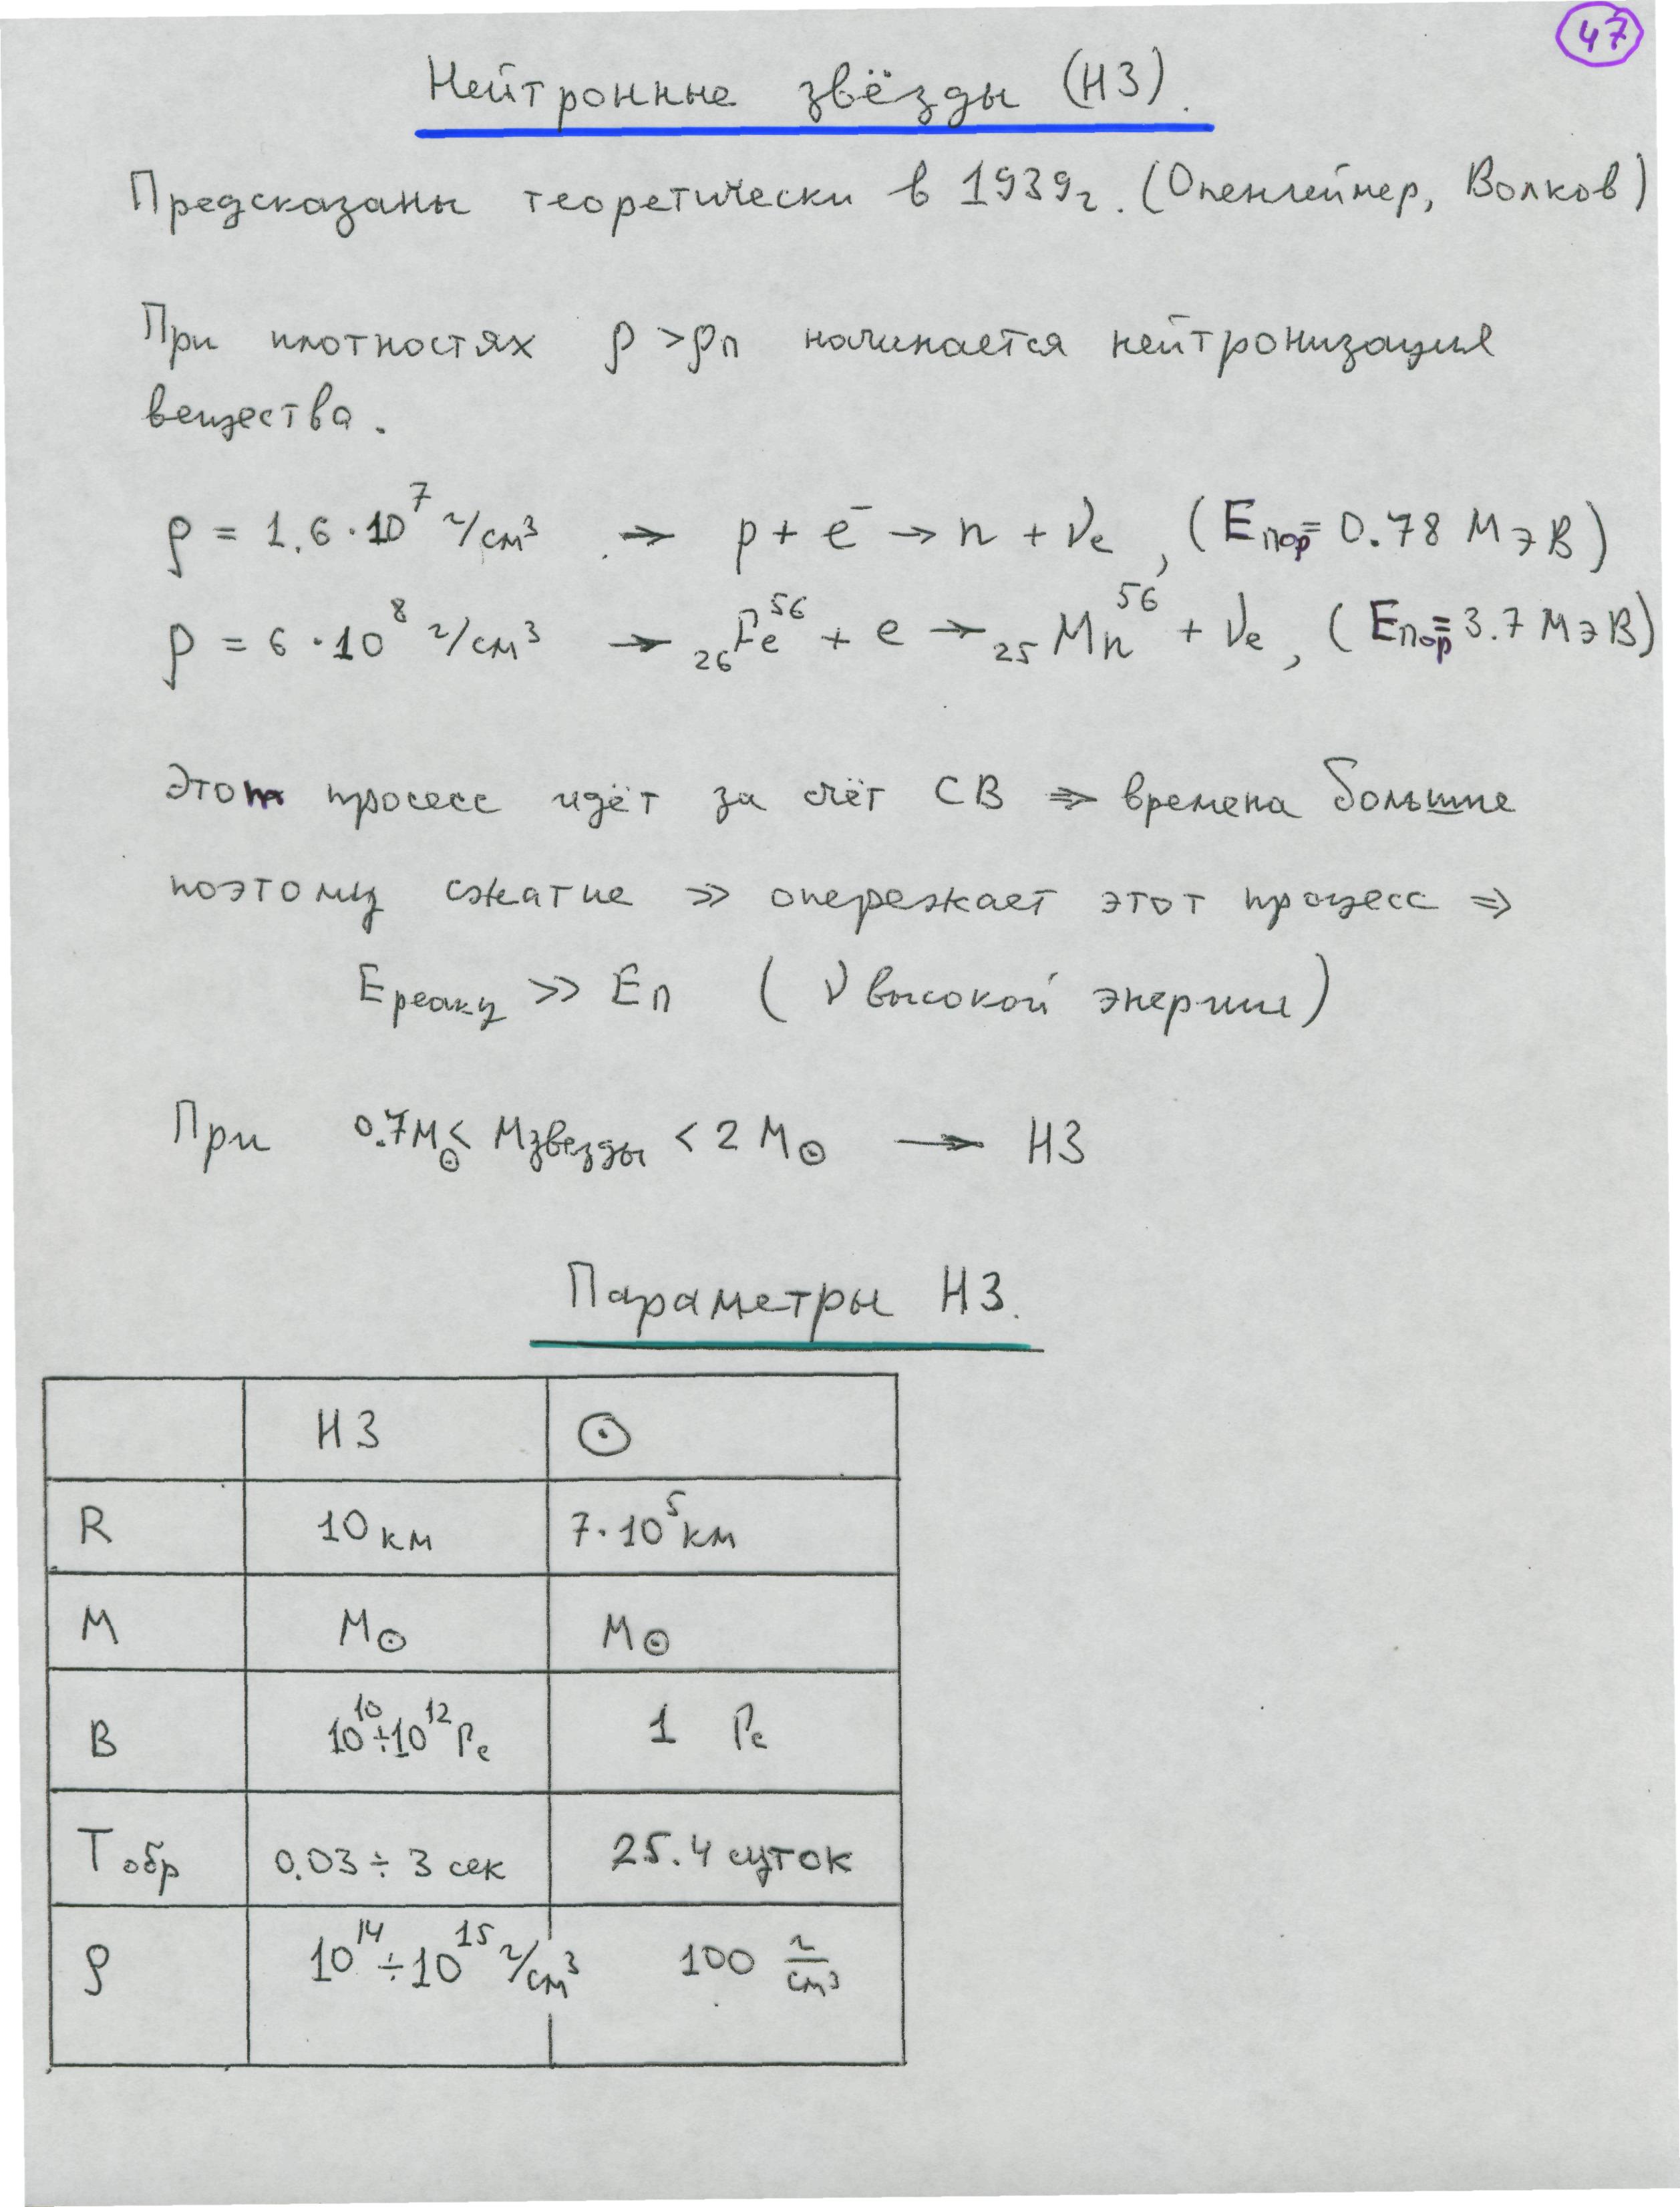 47
Нейтронные звёзды (НЗ).
Предсказаны теоретически в 1939г. (Опенгеймер, Волков)
При плотностях ρ > ρп начинается нейтронизация
вещества.
ρ = 1.6 · 10⁷ г/см³ → p + e⁻ → n + νe, (Eпор = 0.78 МэВ)
ρ = 6 · 10⁸ г/см³ → ₂₆Fe⁵⁶ + e → ₂₅Mn⁵⁶ + νe, (Eпор = 3.7 МэВ)
Этот просесс идёт за счёт СВ ⇒ времена большие
поэтому сжатие >> опережает этот процесс ⇒
Eреакц >> Eп (ν высокой энергии)
При 0.7M⊙ < Mзвезды < 2 M⊙ → НЗ
Параметры НЗ.
НЗ ⊙
R 10 км 7 · 10⁵ км
M M⊙ M⊙
B 10¹⁰ ÷ 10¹² Гс 1 Гс
Tобр 0.03 ÷ 3 сек 25.4 суток
ρ 10¹⁴ ÷ 10¹⁵ г/см³ 100 г/см³